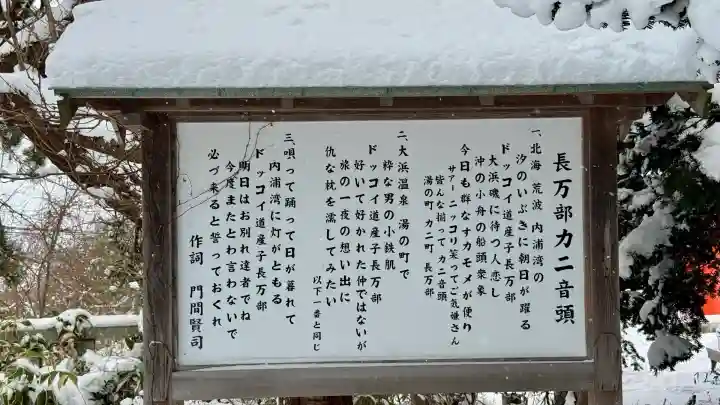 長万部カニ音頭
一、北海 荒波 内浦湾の
汐のいぶきに朝日が躍る
ドッコイ道産子長万部
大浜磯に待つ人恋し
沖の小舟の船頭衆象
今日も群なすカモメが便り
サアーニッコリ笑ってご気嫌さん
皆んな揃ってカニ音頭
湯の町カニ町 長万部
二、大浜温泉 湯の町で
粋な男の小鉄肌
ドッコイ道産子長万部
好いて好かれた仲ではないが
旅の一夜の想い出に
仇な枕を濡してみたい
以下一番と同じ
三、唄って踊って日が暮れて
内浦湾に灯がともる
ドッコイ道産子長万部
明日はお別れ達者でね
今度またとわ言わないで
必づ来ると誓っておくれ
作詞 門間賢司